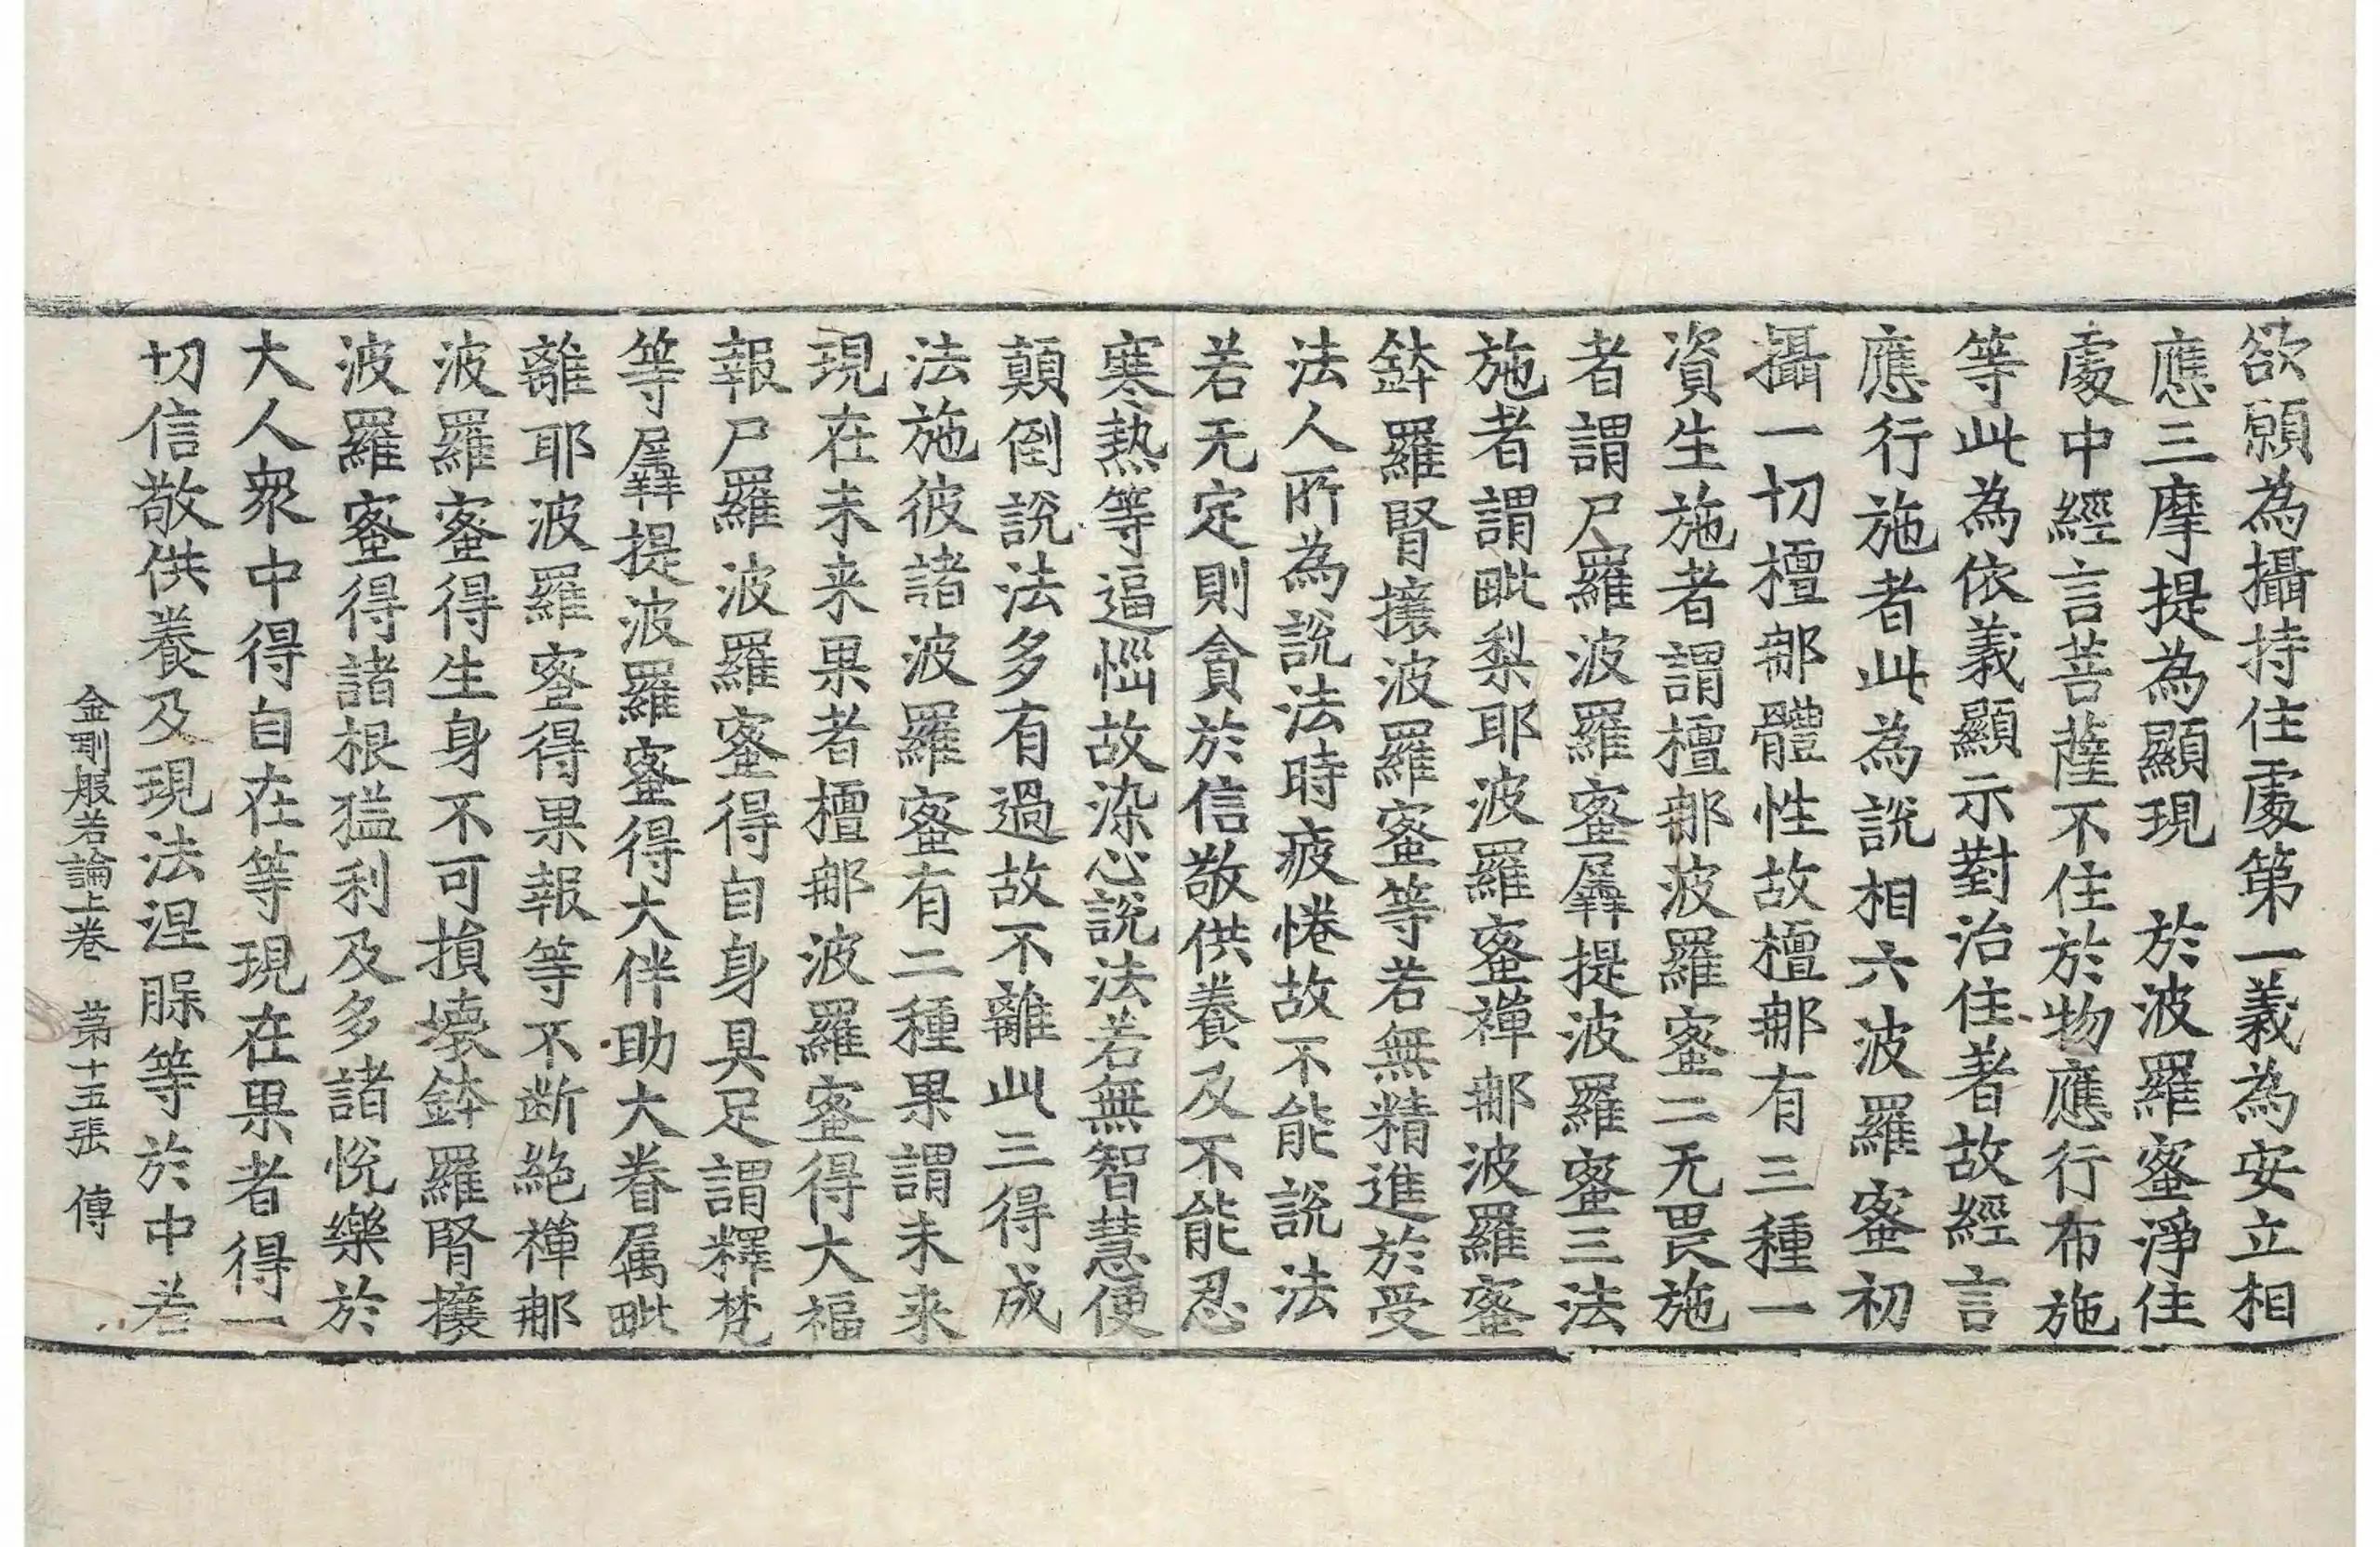 欲願為攝持住處第一義為安立相
應三摩提為顯現　於波羅蜜淨住
處中經言菩薩不住於物應行布施
等此為依義顯示對治住著故經言
應行施者此為說相六波羅蜜初
攝一切檀那體性故檀那有三種一
資生施者謂檀那波羅蜜二无畏施
者謂尸羅波羅蜜羼提波羅蜜三法
施者謂毗梨耶波羅蜜禪那波羅蜜
鉢羅腎攘波羅蜜等若無精進於受
法人所為說法時疲惓故不能說法
若无定則貪於信敬供養及不能忍
寒熱等逼惱故染心說法若無智慧便
顛倒說法多有過故不離此三得成
法施彼諸波羅蜜有二種果謂未来
現在未来果者檀那波羅蜜得大福
報尸羅波羅蜜得自身具足謂釋梵
等羼提波羅蜜得大伴助大眷属毗
離耶波羅蜜得果報等不断絶禪那
波羅蜜得生身不可損壞鉢羅腎攘
波羅蜜得諸根猛利及多諸悅樂於
大人衆中得自在等現在果者得一
切信敬供養及現法涅脲等於中若
金剛般若論上卷　苐十五張　傳